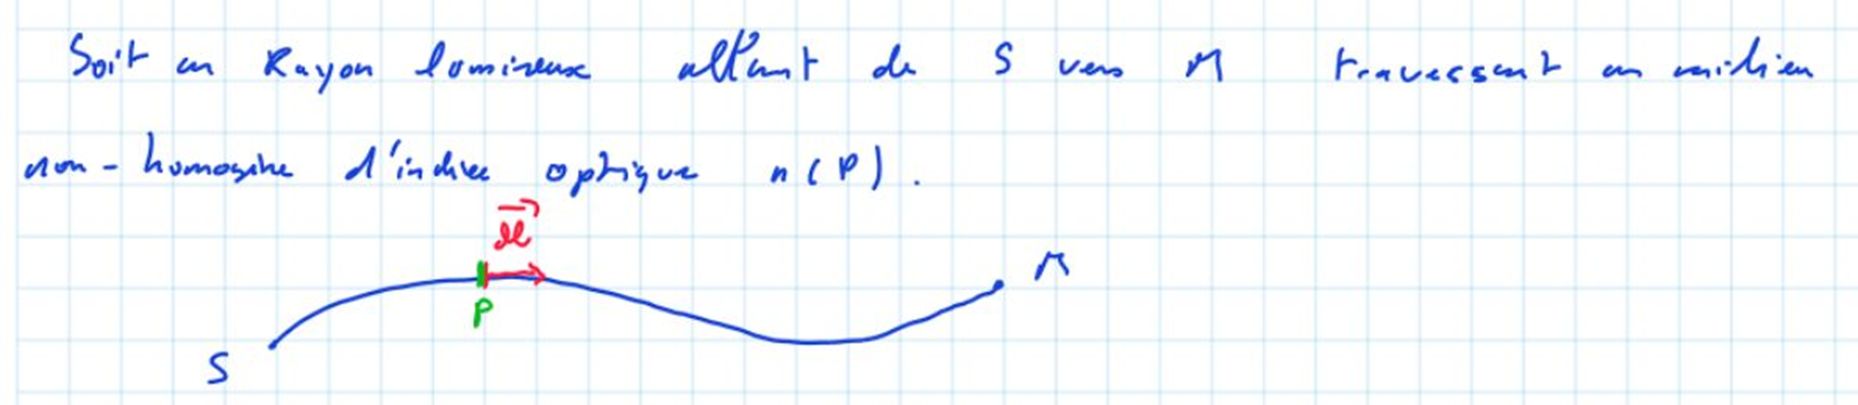 Soit un Rayon lumineux allant de S vers M traversant un milieu
non-homogène d'indice optique n(P).
dl
P
M
S